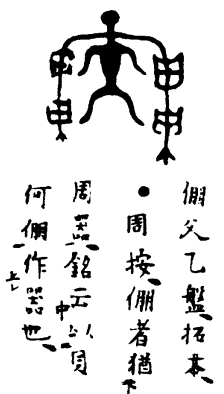 倗父乙盤拓本
●周按倗者猶下
周器銘云中以貝
何倗作器也上